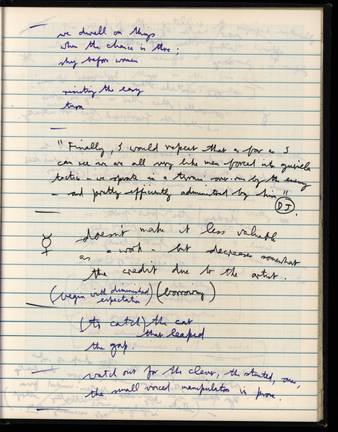 we dwell on things
when the choice is there;
shy before women
resisting the easy
turn
"Finally, I would repeat that as far as I
can see we are all very like men forced into guerilla
tactics - we operate in a terrain over-run by the enemy
- and pretty efficiently administered by him."
DJ.
☿ doesn't make it less valuable
as a work - but decreases somewhat
the credit due to the artist.
(begin with diminished expectation) (borrowing)
(to catch) the cat
that leaped
the gap.
watch out for the clever, the stunted, ones,
the small voiced manipulators in prose.